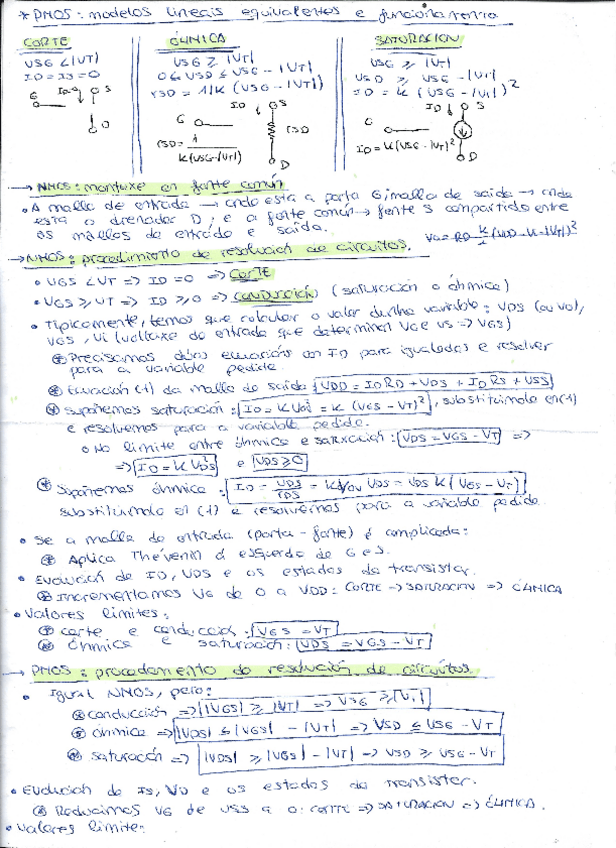 * PMOS: modelos lineais equivalentes e funcionamento
CORTE
VSG < |VT|
ID = IS = 0
G ID S
D
ÓHMICA
VSG ≥ |VT|
0 ≤ VSD ≤ VSG - |VT|
rSD = 1/K (VSG - |VT|)
ID S
G rSD
rSD = 1 / K(VSG-|VT|)
D
SATURACIÓN
VSG ≥ |VT|
VSD ≥ VSG - |VT|
ID = K (VSG - |VT|)²
ID S
G
ID = K(VSG - |VT|)²
D
→ NMOS: montaxe en fonte común
• A malla de entrada → onde está a porta G; malla de saída → onde
está o drenador D; e a fonte común → fonte S compartido entre
as mallas de entrada e saída.
→ NMOS: procedimiento de resolución de circuitos.
• VGS < VT => ID = 0 => CORTE
• VGS ≥ VT => ID ≥ 0 => CONDUCIÓN (saturación o óhmica)
• Tipicamente, temos que calcular o valor dunha variable: VDS (ou VO),
VGS, Vi (voltaxe de entrada que determinen VG e VS => VGS)
* Precisamos dúas ecuacións con ID para igualalas e resolver
para a variable pedida.
* Ecuación (1) da malla de saída: VDD = ID RD + VDS + ID RS + VSS
* Supoñemos saturación: ID = K Vov² = K (VGS - VT)², substituímolo en (1)
e resolvemos para a variable pedida.
◦ No límite entre óhmica e saturación: VDS = VGS - VT =>
=> ID = K VDS² e VDS ≥ 0
* Supoñemos óhmica: ID = VDS/rDS = K Vov VDS = VDS K (VGS - VT)
substituímolo en (1) e resolvemos para a variable pedida.
• Se a malla de entrada (porta - fonte) é complicada:
* Aplica Thévenin á esquerda de G e S.
• Evolución de ID, VDS e os estados do transistor.
* Incrementamos VG de 0 a VDD: CORTE → SATURACIÓN => ÓHMICA
• Valores límites:
* Corte e conducción: VGS = VT
* Óhmica e saturación: VDS = VGS - VT
→ PMOS: procedemento de resolución de circuitos.
• Igual NMOS, pero:
* conducción => |VGS| ≥ |VT| => VSG ≥ |VT|
* óhmica => |VDS| ≤ |VGS| - |VT| => VSD ≤ VSG - VT
* saturación => |VDS| ≥ |VGS| - |VT| => VSD ≥ VSG - VT
• Evolución de IS, VD e os estados do transistor.
* Reducimos VG de VSS a 0: CORTE => SATURACIÓN => ÓHMICA.
• Valores límite: